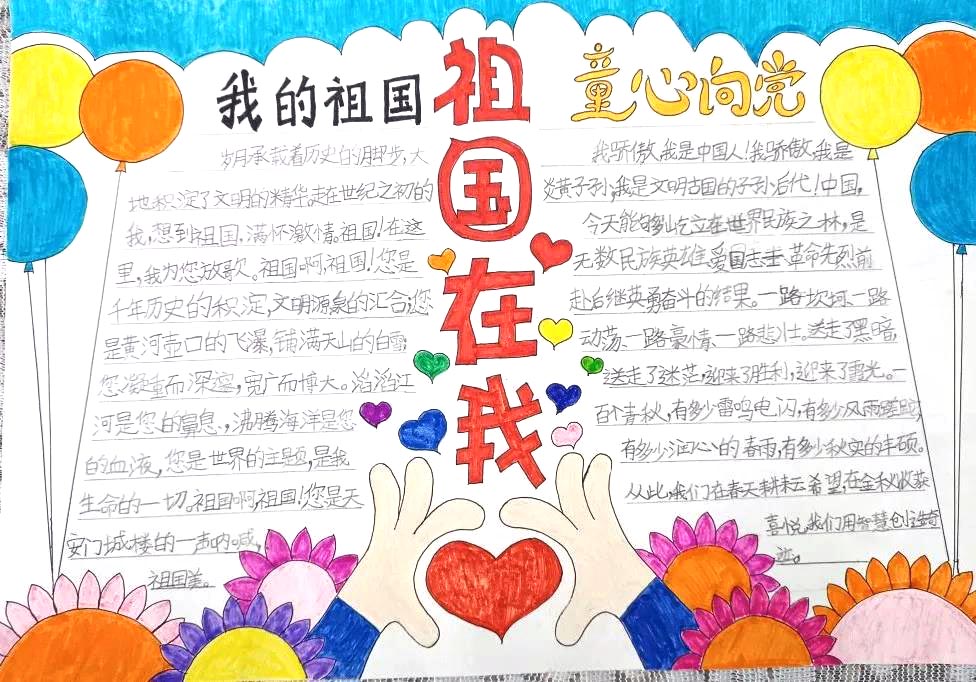 我的祖国
岁月承载着历史的脚步,大
地积淀了文明的精华,走在世纪之初的
我,想到祖国,满怀激情。祖国!在这
里,我为您放歌。祖国啊,祖国!您是
千年历史的积淀,文明源泉的汇合;您
是黄河壶口的飞瀑,铺满天山的白雪;
您凝重而深邃,宽广而博大。滔滔江
河是您的鼻息,沸腾海洋是您
的血液,您是世界的主题,是我
生命的一切。祖国啊,祖国!您是天
安门城楼的一声呐喊,
祖国美。
祖国在我
童心向党
我骄傲,我是中国人!我骄傲,我是
炎黄子孙;我是文明古国的子孙后代!中国,
今天能够屹立在世界民族之林,是
无数民族英雄爱国志士革命先烈前
赴后继英勇奋斗的结果。一路坎坷、一路
动荡、一路豪情、一路悲壮。送走了黑暗,
送走了迷茫,迎来了胜利,迎来了曙光。一
百个春秋,有多少雷鸣电闪,有多少风雨
有多少润心的春雨,有多少秋实的丰硕。
从此,我们在春天耕耘希望,在金秋收获
喜悦,我们用智慧创造奇
迹。